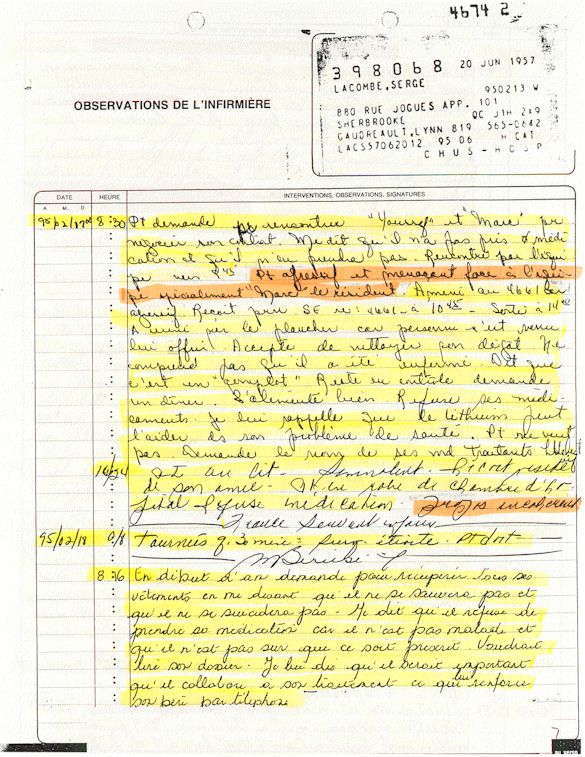 4674 2
398068 20 JUN 1957
LACOMBE, SERGE
950213 W
880 RUE JOGUES APP. 101
SHERBROOKE QC J1H 2X9
GAUDREAULT, LYNN 819 565-0642
LACS57062012 95 06 H CAT
CHUS - HOSP
OBSERVATIONS DE L'INFIRMIÈRE
DATE HEURE INTERVENTIONS, OBSERVATIONS, SIGNATURES
A M. D
95/02/17 8:30 Pt demande rencontrer "Youssef" et "Marc" pr
négocier son contrat. Me dit qu'il n'a pas pris médi-
cation et qu'il n'en prendra pas. Rencontré par l'équi
pe vers Pt agressif et menaçant face à l'équi-
pe spécialement "Marc" le résident. Amené au 4661
Reçoit 4661 à 10 45 Sortie à 14
A uriné sur le plancher car personne n'est venu
lui offrir. Accepte de nettoyer son dégât. Ne
comprend pas qu'il a été enfermé. Dit que
c'est un "complot" Reste en contrôle demande
un dîner. S'alimente bien Refuse ses médi-
caments. Je lui rappelle que le lithium peut
l'aider ds son problème de santé. Pt ne veut
pas. Demande le nom de ses md traitants
16/24 Pt au lit. Somnolent.
de son amie. en robe de chambre d'hô-
pital. Refuse médication. incohérent
France
95/02/18 0/8 Tournées Pt dort
8:16 En début d'am demande pour récupérer tous ses
vêtements en me disant qu'il ne se sauvera pas et
qu'il ne se suicidera pas. Me dit qu'il refuse de
prendre sa médication car il n'est pas malade et
qu'il n'est pas sur que ce soit prescrit. Voudrait
lire son dossier. Je lui dis qu'il serait important
qu'il collabore à son traitement ce que renforce
son père par téléphone
7